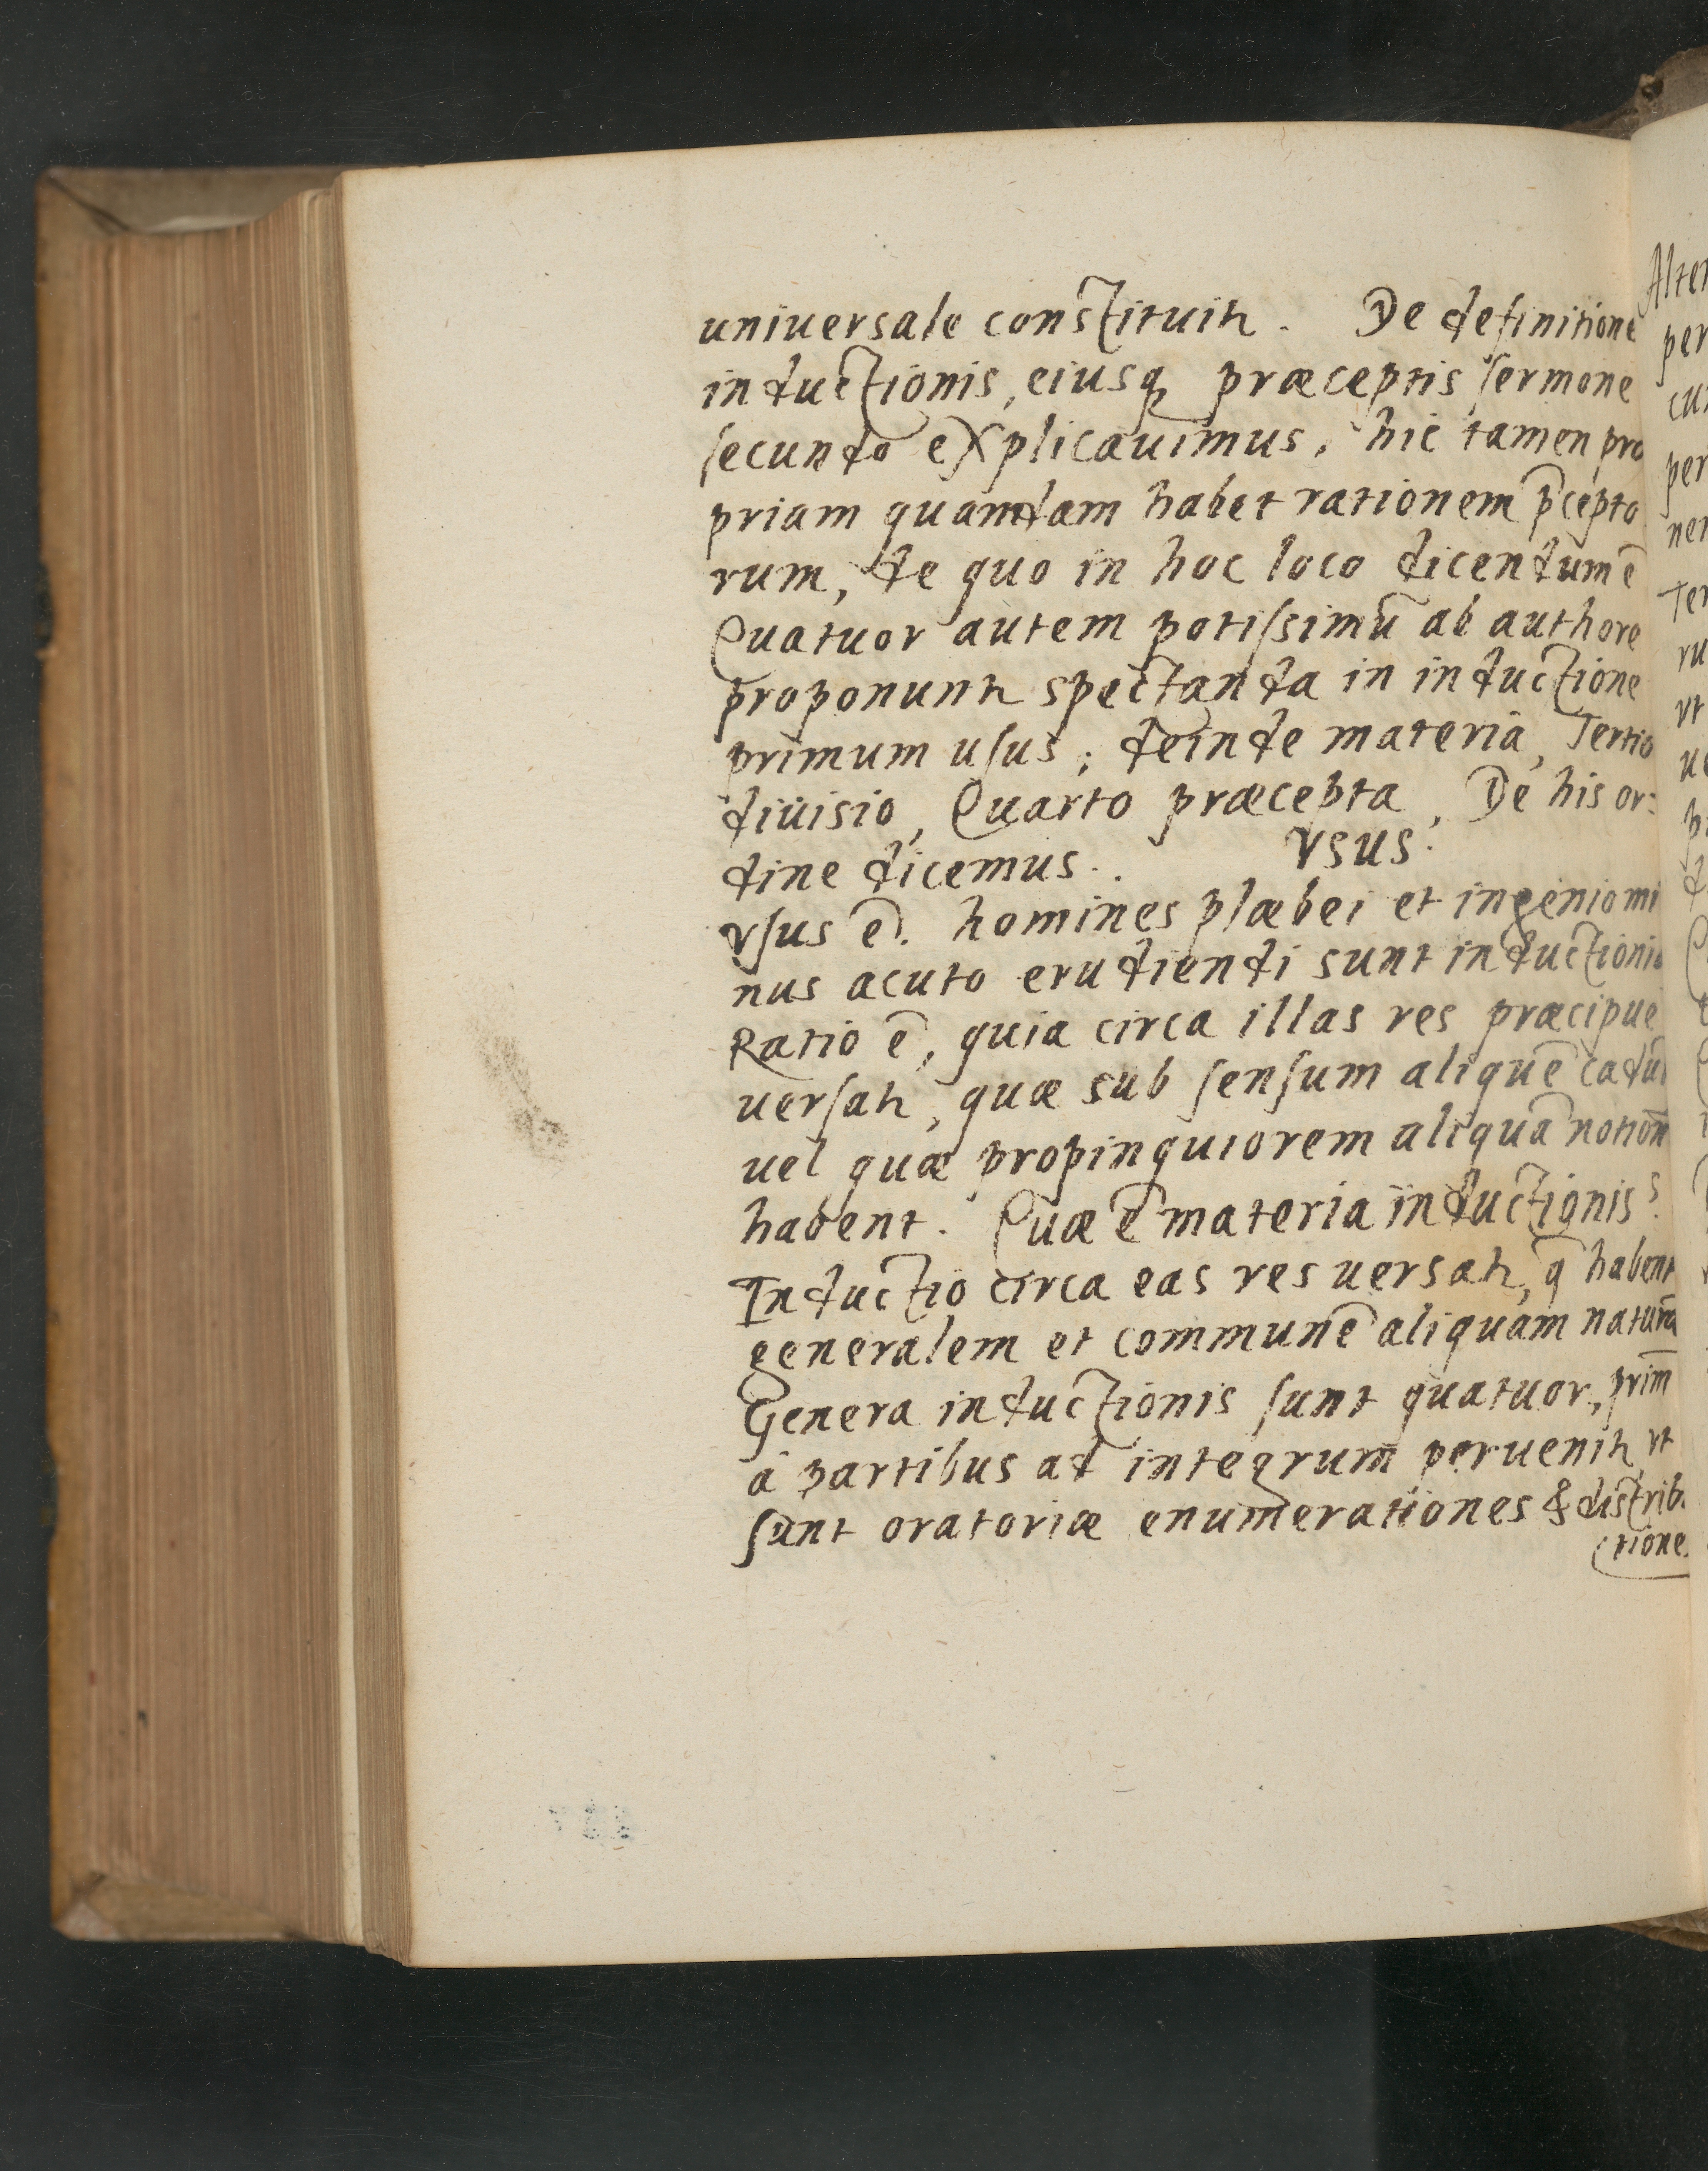 uniuersale constituitr. De definitione
inductionis, eiusq̃ præceptis sermone
secundo explicauimus, hic tamen pro
priam quamdam habet rationem p̄cepto
rum, de quo in hoc loco dicendum ē
Quatuor autem potissimū ab authore
proponuntr spectanda in inductione
primum usus; deinde materia, Tertio
diuisio, Quarto præcepta, De his or=
dine dicemus. vsus.
vsus ē. homines plæbei et ingenio mi
nus acuto erudiendi sunt inductionis
Ratio ē, quia circa illas res præcipue
uersatr, quæ sub sensum aliquē cadūt
uel quæ propinquiorem aliquā notionē
habent. Quæ ē materia inductionis?
Inductio circa eas res uersatr, q̄ habent
generalem et communē aliquam naturā
Genera inductionis sunt quatuor, prim̄
à partibus ad integrum peruenitr, vt
sunt oratoriæ enumerationes & distribu
(tiones
Alter
per
per
ner
ru
vt